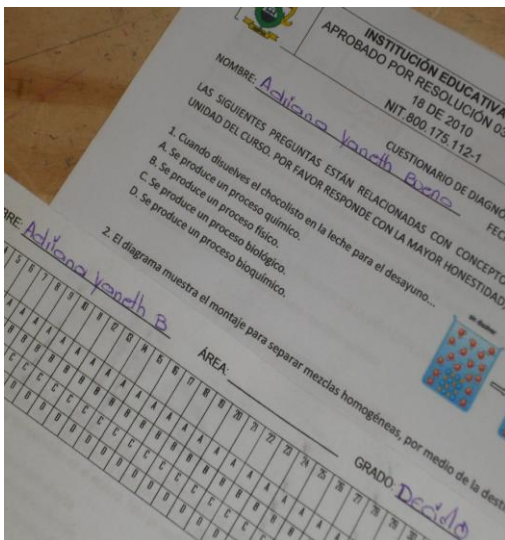 INSTITUCIÓN EDUCATIVA
APROBADO POR RESOLUCIÓN 03
18 DE 2010
NIT.800.175.112-1
NOMBRE: Adriana Yaneth Bueno
CUESTIONARIO DE DIAGNÓ
FEC
LAS SIGUIENTES PREGUNTAS ESTÁN RELACIONADAS CON CONCEPTO
UNIDAD DEL CURSO. POR FAVOR RESPONDE CON LA MAYOR HONESTIDAD,
1. Cuando disuelves el chocolisto en la leche para el desayuno...
A. Se produce un proceso químico.
B. Se produce un proceso físico.
C. Se produce un proceso biológico.
D. Se produce un proceso bioquímico.
2. El diagrama muestra el montaje para separar mezclas homogéneas, por medio de la dest
BRE: Adriana Yaneth B
ÁREA:
GRADO: Decido
4 5 6 7 8 9 10 11 12 13 14 15 16 17 18 19 20 21 22 23 24 25 26 27 28 29 30
A A A A A A A A A A A A A A A A A A A A A A A A
B B B B B B B B B B B B B B B B B B B B B B B
C C C C C C C C C C C C C C C C C C C C C
D D D D D D D D D D D D D D D D D D D